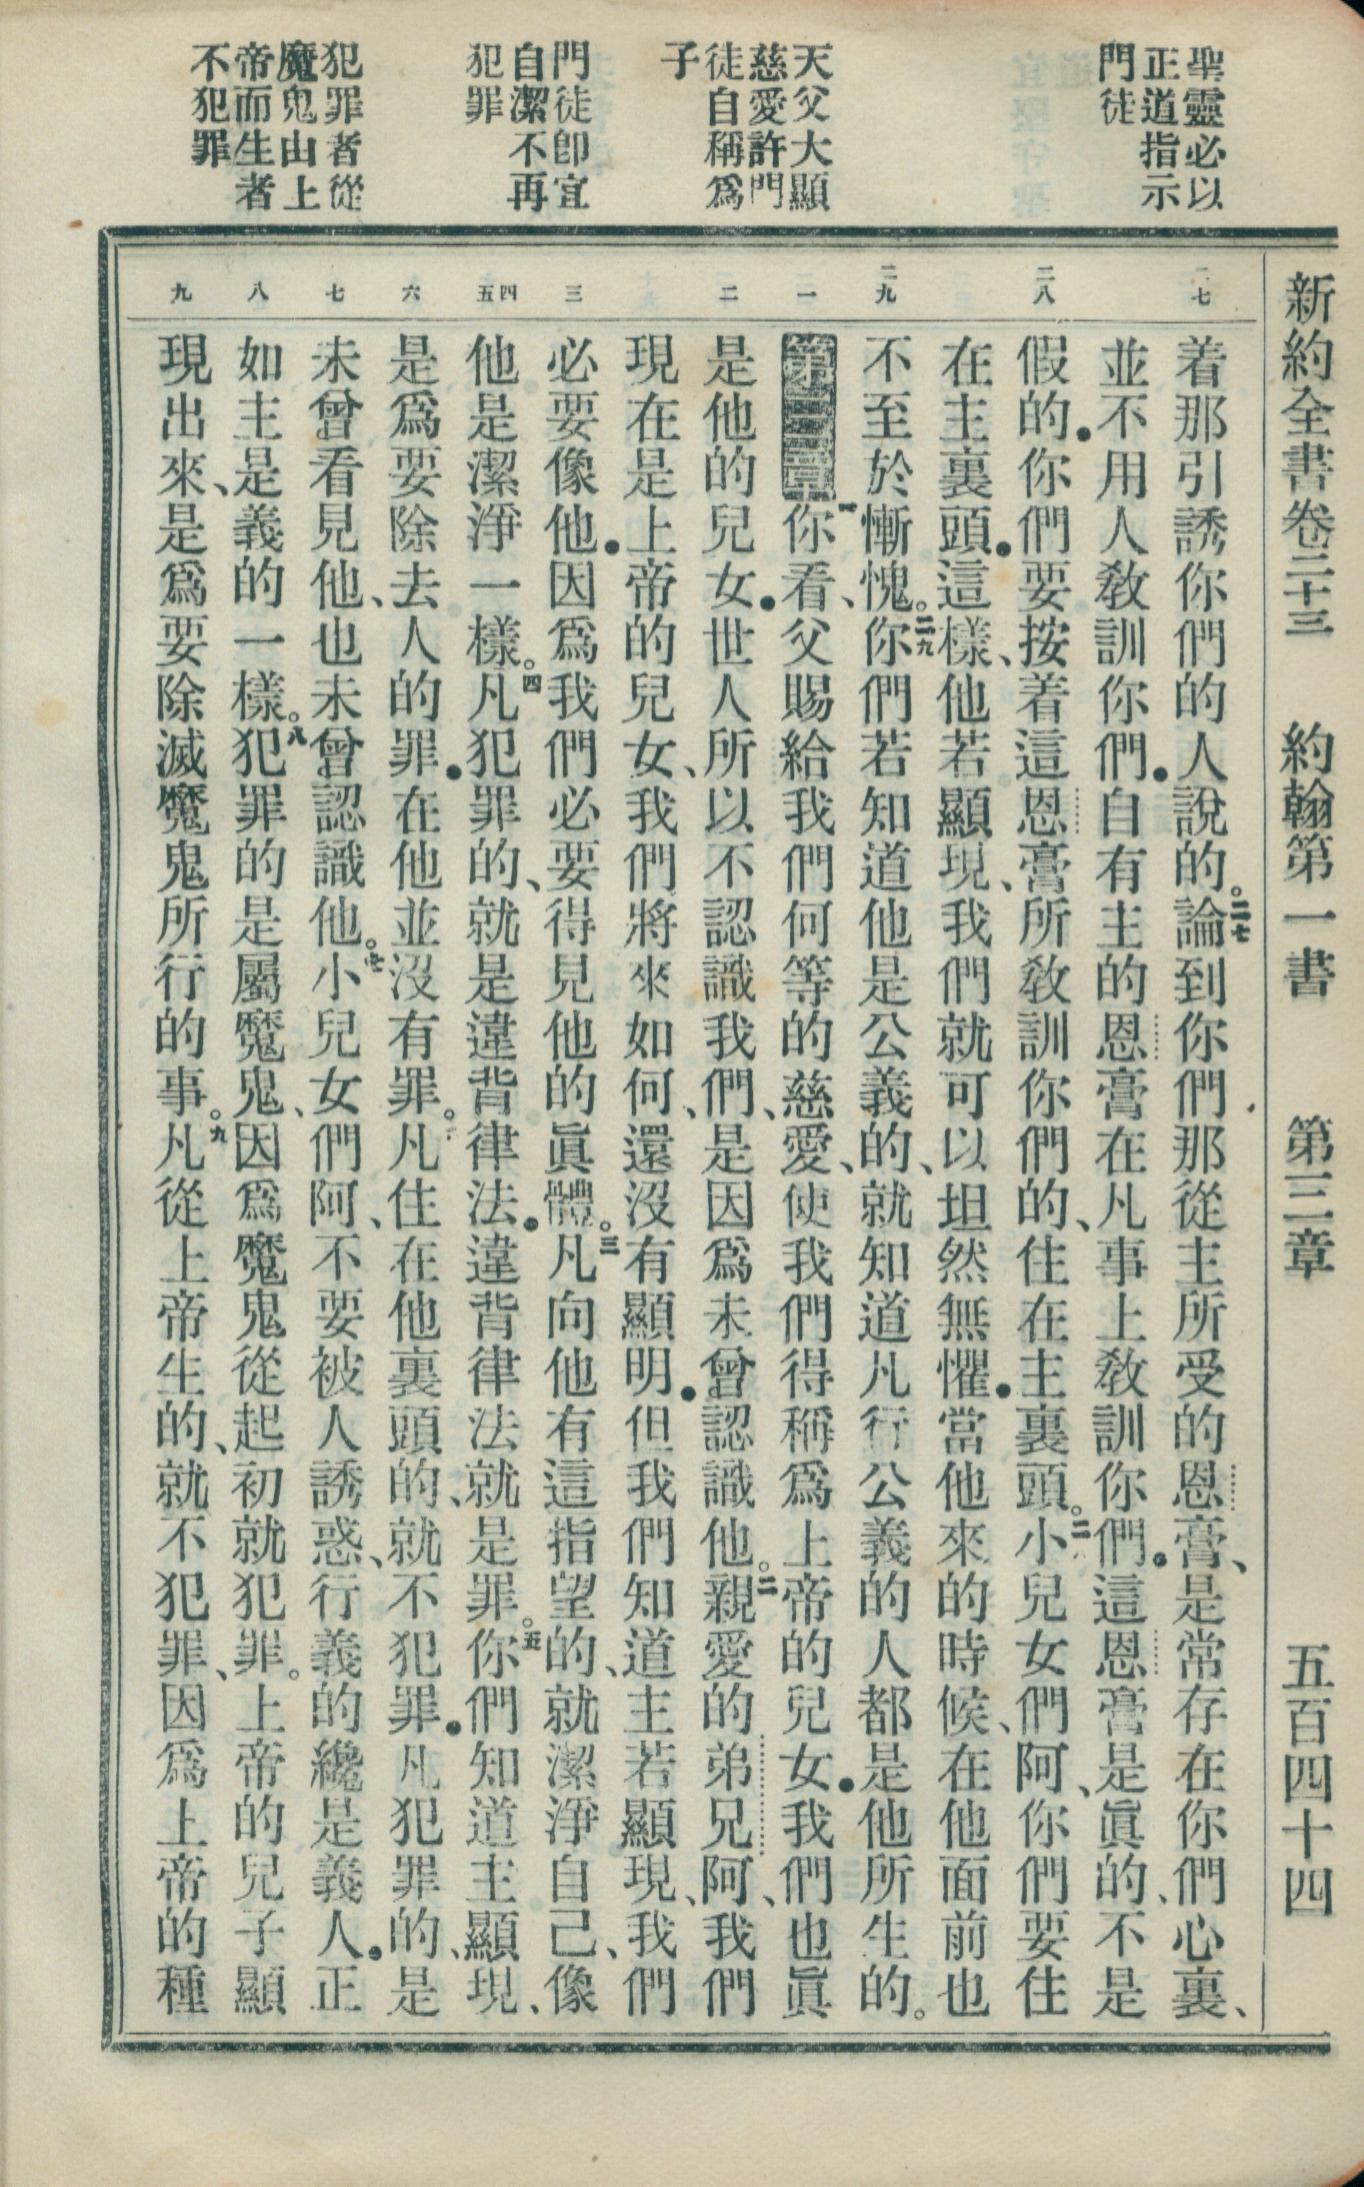 新約全書卷二十三　約翰第一書　第三章　五百四十四
聖靈必以
正道指示
門徒
天父大顯
慈愛許門
徒自稱爲
子
門徒卽宜
自潔不再
犯罪
犯罪者從
魔鬼由上
帝而生者
不犯罪
二七　二八　二九　一　二　三　四　五　六　七　八　九
着那引誘你們的人說的。二七論到你們那從主所受的恩膏、是常存在你們心裏、
並不用人敎訓你們●自有主的恩膏在凡事上敎訓你們●這恩膏是眞的、不是
假的●你們要按着這恩膏所敎訓你們的、住在主裏頭。二八小兒女們阿、你們要住
在主裏頭●這樣、他若顯現、我們就可以坦然無懼●當他來的時候、在他面前也
不至於慚愧。二九你們若知道他是公義的、就知道凡行公義的人都是他所生的。
第三章一你看、父賜給我們何等的慈愛、使我們得稱爲上帝的兒女●我們也眞
是他的兒女●世人所以不認識我們、是因爲未曾認識他。二親愛的弟兄阿、我們
現在是上帝的兒女、我們將來如何、還沒有顯明●但我們知道主若顯現、我們
必要像他●因爲我們必要得見他的眞體。三凡向他有這指望的、就潔淨自己、像
他是潔淨一樣。四凡犯罪的、就是違背律法●違背律法就是罪。五你們知道主顯現、
是爲要除去人的罪●在他並沒有罪。凡住在他裏頭的、就不犯罪●凡犯罪的、是
未曾看見他、也未曾認識他。七小兒女們阿、不要被人誘惑、行義的纔是義人●正
如主是義的一樣。八犯罪的是屬魔鬼、因爲魔鬼從起初就犯罪。上帝的兒子顯
現出來、是爲要除滅魔鬼所行的事。九凡從上帝生的、就不犯罪、因爲上帝的種